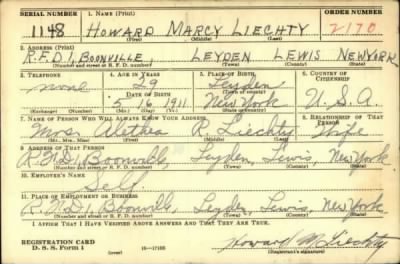 SERIAL NUMBER 1. NAME (Print) ORDER NUMBER
1148 HOWARD MARCY LIECHTY 2170
(First) (Middle) (Last)
2. ADDRESS (Print)
R.F.D.1, BOONVILLE, LEYDEN LEWIS NEW YORK
(Number and street or R. F. D. number) (Town) (County) (State)
3. TELEPHONE 4. AGE IN YEARS 5. PLACE OF BIRTH 6. COUNTRY OF CITIZENSHIP
none 29 Leyden
DATE OF BIRTH (Town or county)
5 16 1911 New York U.S.A.
(Exchange) (Number) (Mo.) (Day) (Yr.) (State or country)
7. NAME OF PERSON WHO WILL ALWAYS KNOW YOUR ADDRESS 8. RELATIONSHIP OF THAT PERSON
Mrs. Alethea R. Liechty Wife
(Mr., Mrs., Miss) (First) (Middle) (Last)
9. ADDRESS OF THAT PERSON
R.F.D.1, Boonville, Leyden, Lewis, New York
(Number and street or R. F. D. number) (Town) (County) (State)
10. EMPLOYER'S NAME
Self
11. PLACE OF EMPLOYMENT OR BUSINESS
R.F.D.1, Boonville, Leyden, Lewis, New York
(Number and street or R. F. D. number) (Town) (County) (State)
I AFFIRM THAT I HAVE VERIFIED ABOVE ANSWERS AND THAT THEY ARE TRUE.
REGISTRATION CARD
D. S. S. Form 1 16—17105 Howard M Liechty
(Registrant's signature)